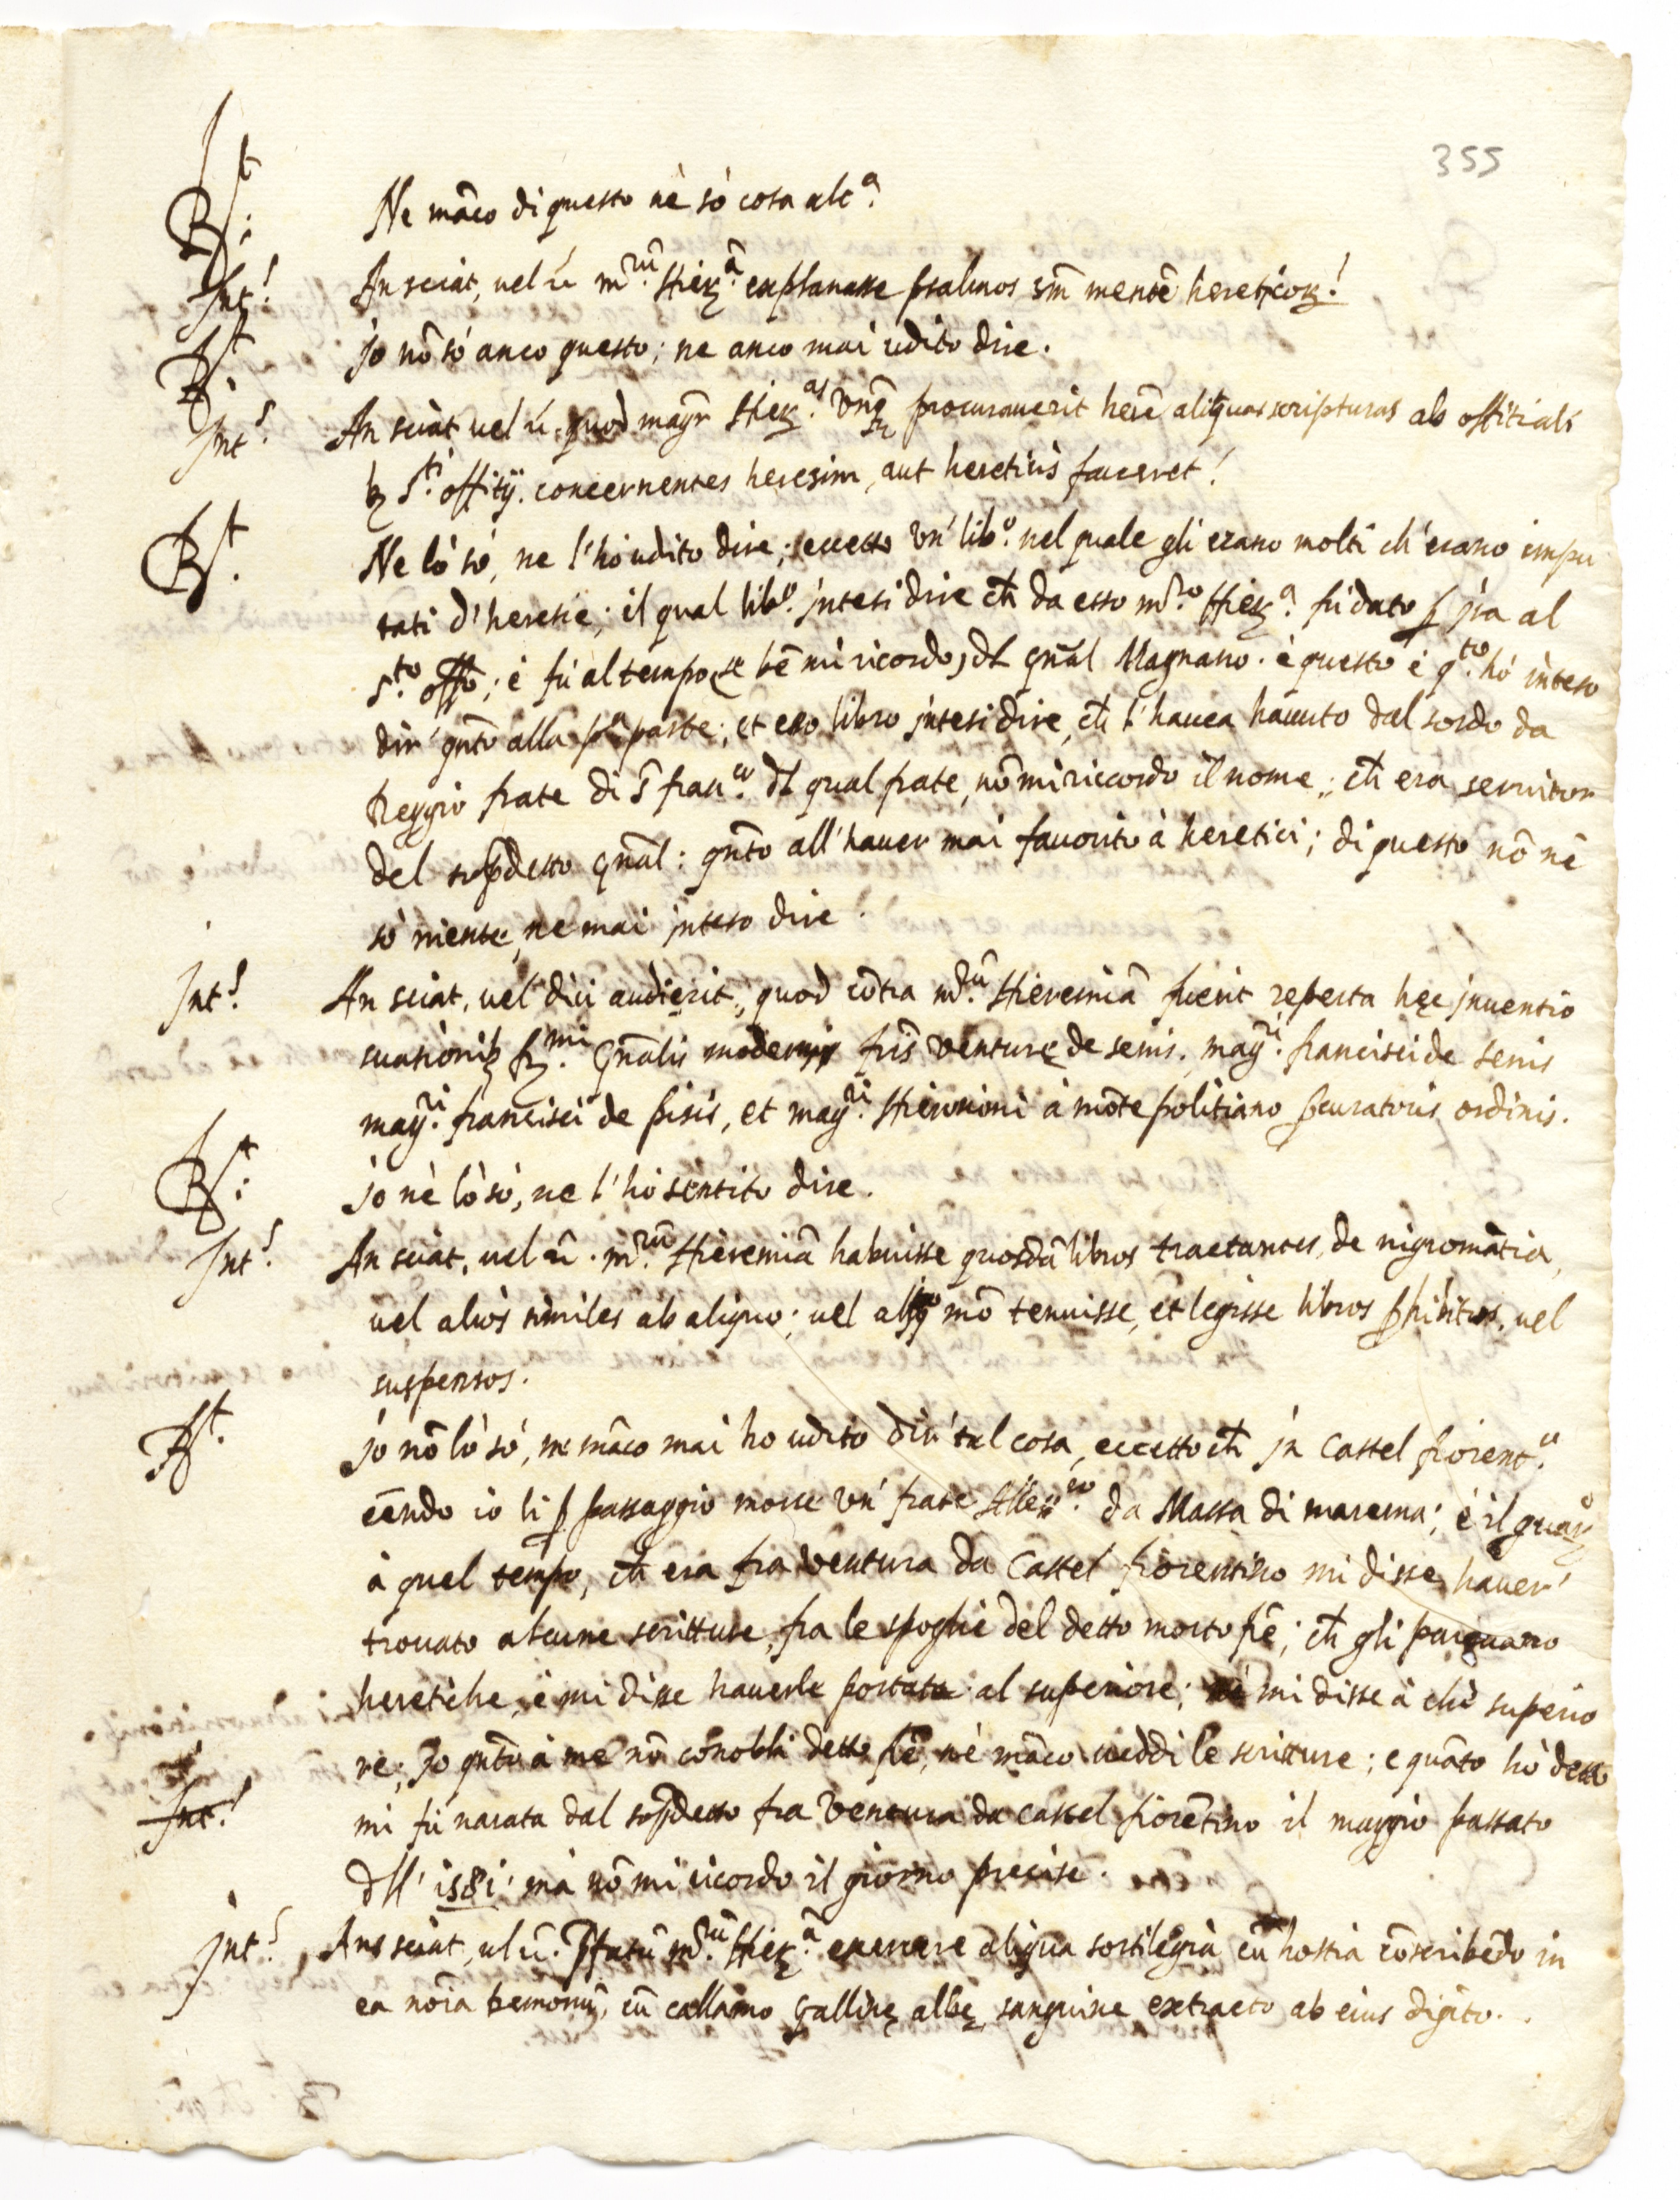 355
R.t: Ne mãco di questo nè sò cosa alc.a
Int.s An sciat, vel ũ m.rũ Hier.ã explanasse psalmos sm̃ mentẽ hereticor!
R.t Jo nõ sò anco questo; ne anco mai udito dire.
Int.s An sciat vel ũ. quod mag.r Hier.as unq̃ procurauerit herẽ aliquas scripturas ab offitiali
b. S.ti offitij. concernentes heresim, aut hereticis faueret!
R.t. Ne lò sò, ne l'hò udito dire; eccetto un' lib.o nel quale gli erano molti ch' erano impu
tati d'heresie; il qual lib.o intesi dire ch̃ da esso m.ro Hier.a fù dato p jra al
s.to offõ; è fù al tempo, se bẽ mi ricordo, dl gñal Magnano. è questo è q.to hò inteso
dir' q̃nto alla p.a parte; et esso libro intesi dire, ch̃ l'hauea hauuto dal sordo da
Reggio frate di S̃ fran.co dl qual frate, nõ mi riccordo il nome; ch̃ era seruitor
del sop̃detto gñal: q̃nto all'hauer mai fauorito à heretici; di questo nõ nè
sò niente, ne mai inteso dire.
Int.s An sciat, vel dici audierit, quod cõtra m.rũ Hieremiã fuerit reperta hęc inuentio
suasionib. R.mi Gñalis moderni fr̃is Venturę de senis. mag.ri francisci de senis
mag.ri francisci de pisis, et mag.ri Hieronimi à mõte politiano p̃curatoris ordinis.
R.t: Jo nè lò sò, ne l'hò sentito dire.
Int.s An sciat, vel ũ. m.rũ Hieremiã habuisse quosdã libros tractantes, de nigromãtia,
vel alios similes ab aliquo; vel aliq̃ mõ tenuisse, et legisse libros p̃hibitos. vel
suspensos.
R.t. Jo nõ lò sò, ne mãco mai ho udito dir' tal cosa, eccetto ch̃ in Castel fiorent.o
eẽndo io li p passaggio morse un' frate da Massa di marema; è il guar.o
à quel tempo, ch̃ era fra Ventura da Castel fiorentino mi disse, hauer'
trouato alcune scritture, fra le spoglie del detto morto frẽ; ch̃ gli pareuano
heretiche, è mi disse hauerle portate al superiore; nè mi disse à chè superio
re; Jo q̃nto à me nõ conobbi detto frẽ, nè mãco viddi le scritture; e quãto hò detto
Int.s mi fù narata dal sop̃detto fra Ventura da castel fiorẽtino il maggio passato
dll' 1581: mà nõ mi ricordo il giorno precise.
Int.s An sciat, vl ũ. p̃fatũ m.rũ Hier.ã exercere aliqua sortilegia cũ hostia cõscribẽdo in
ea noĩa demonũ, cũ callamo gallinę albę, sanguine extracto ab eius digito.